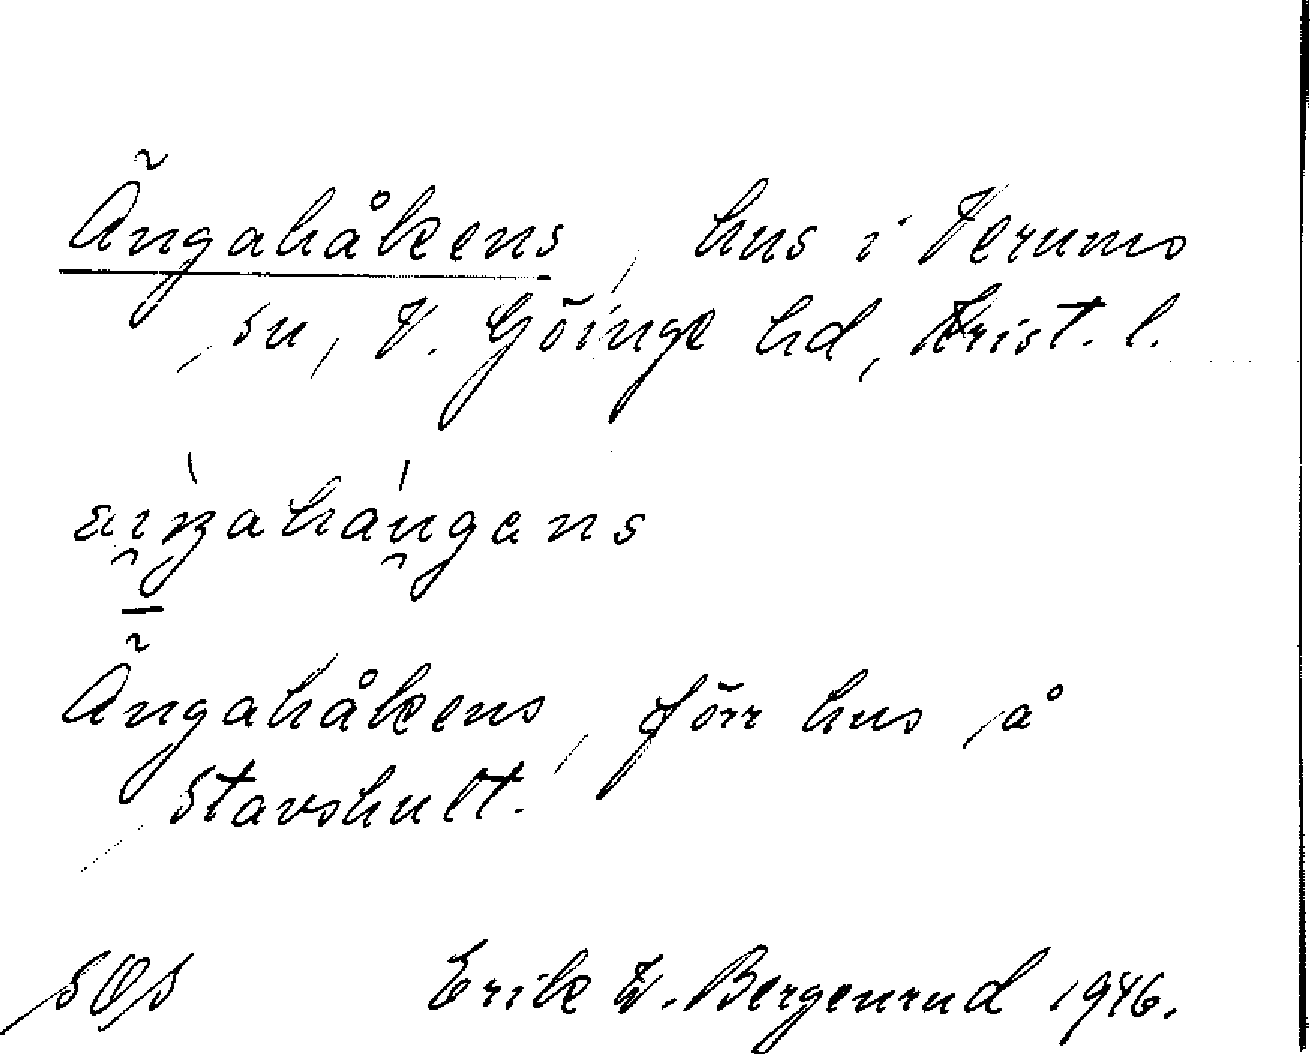 Ängahåkens, hus i Verums
sn, V. Göinge hd, Krist. l.
Ängahåkens, förr hus å
Stavshult.
SOS Erik W. Bergenrud 1946.